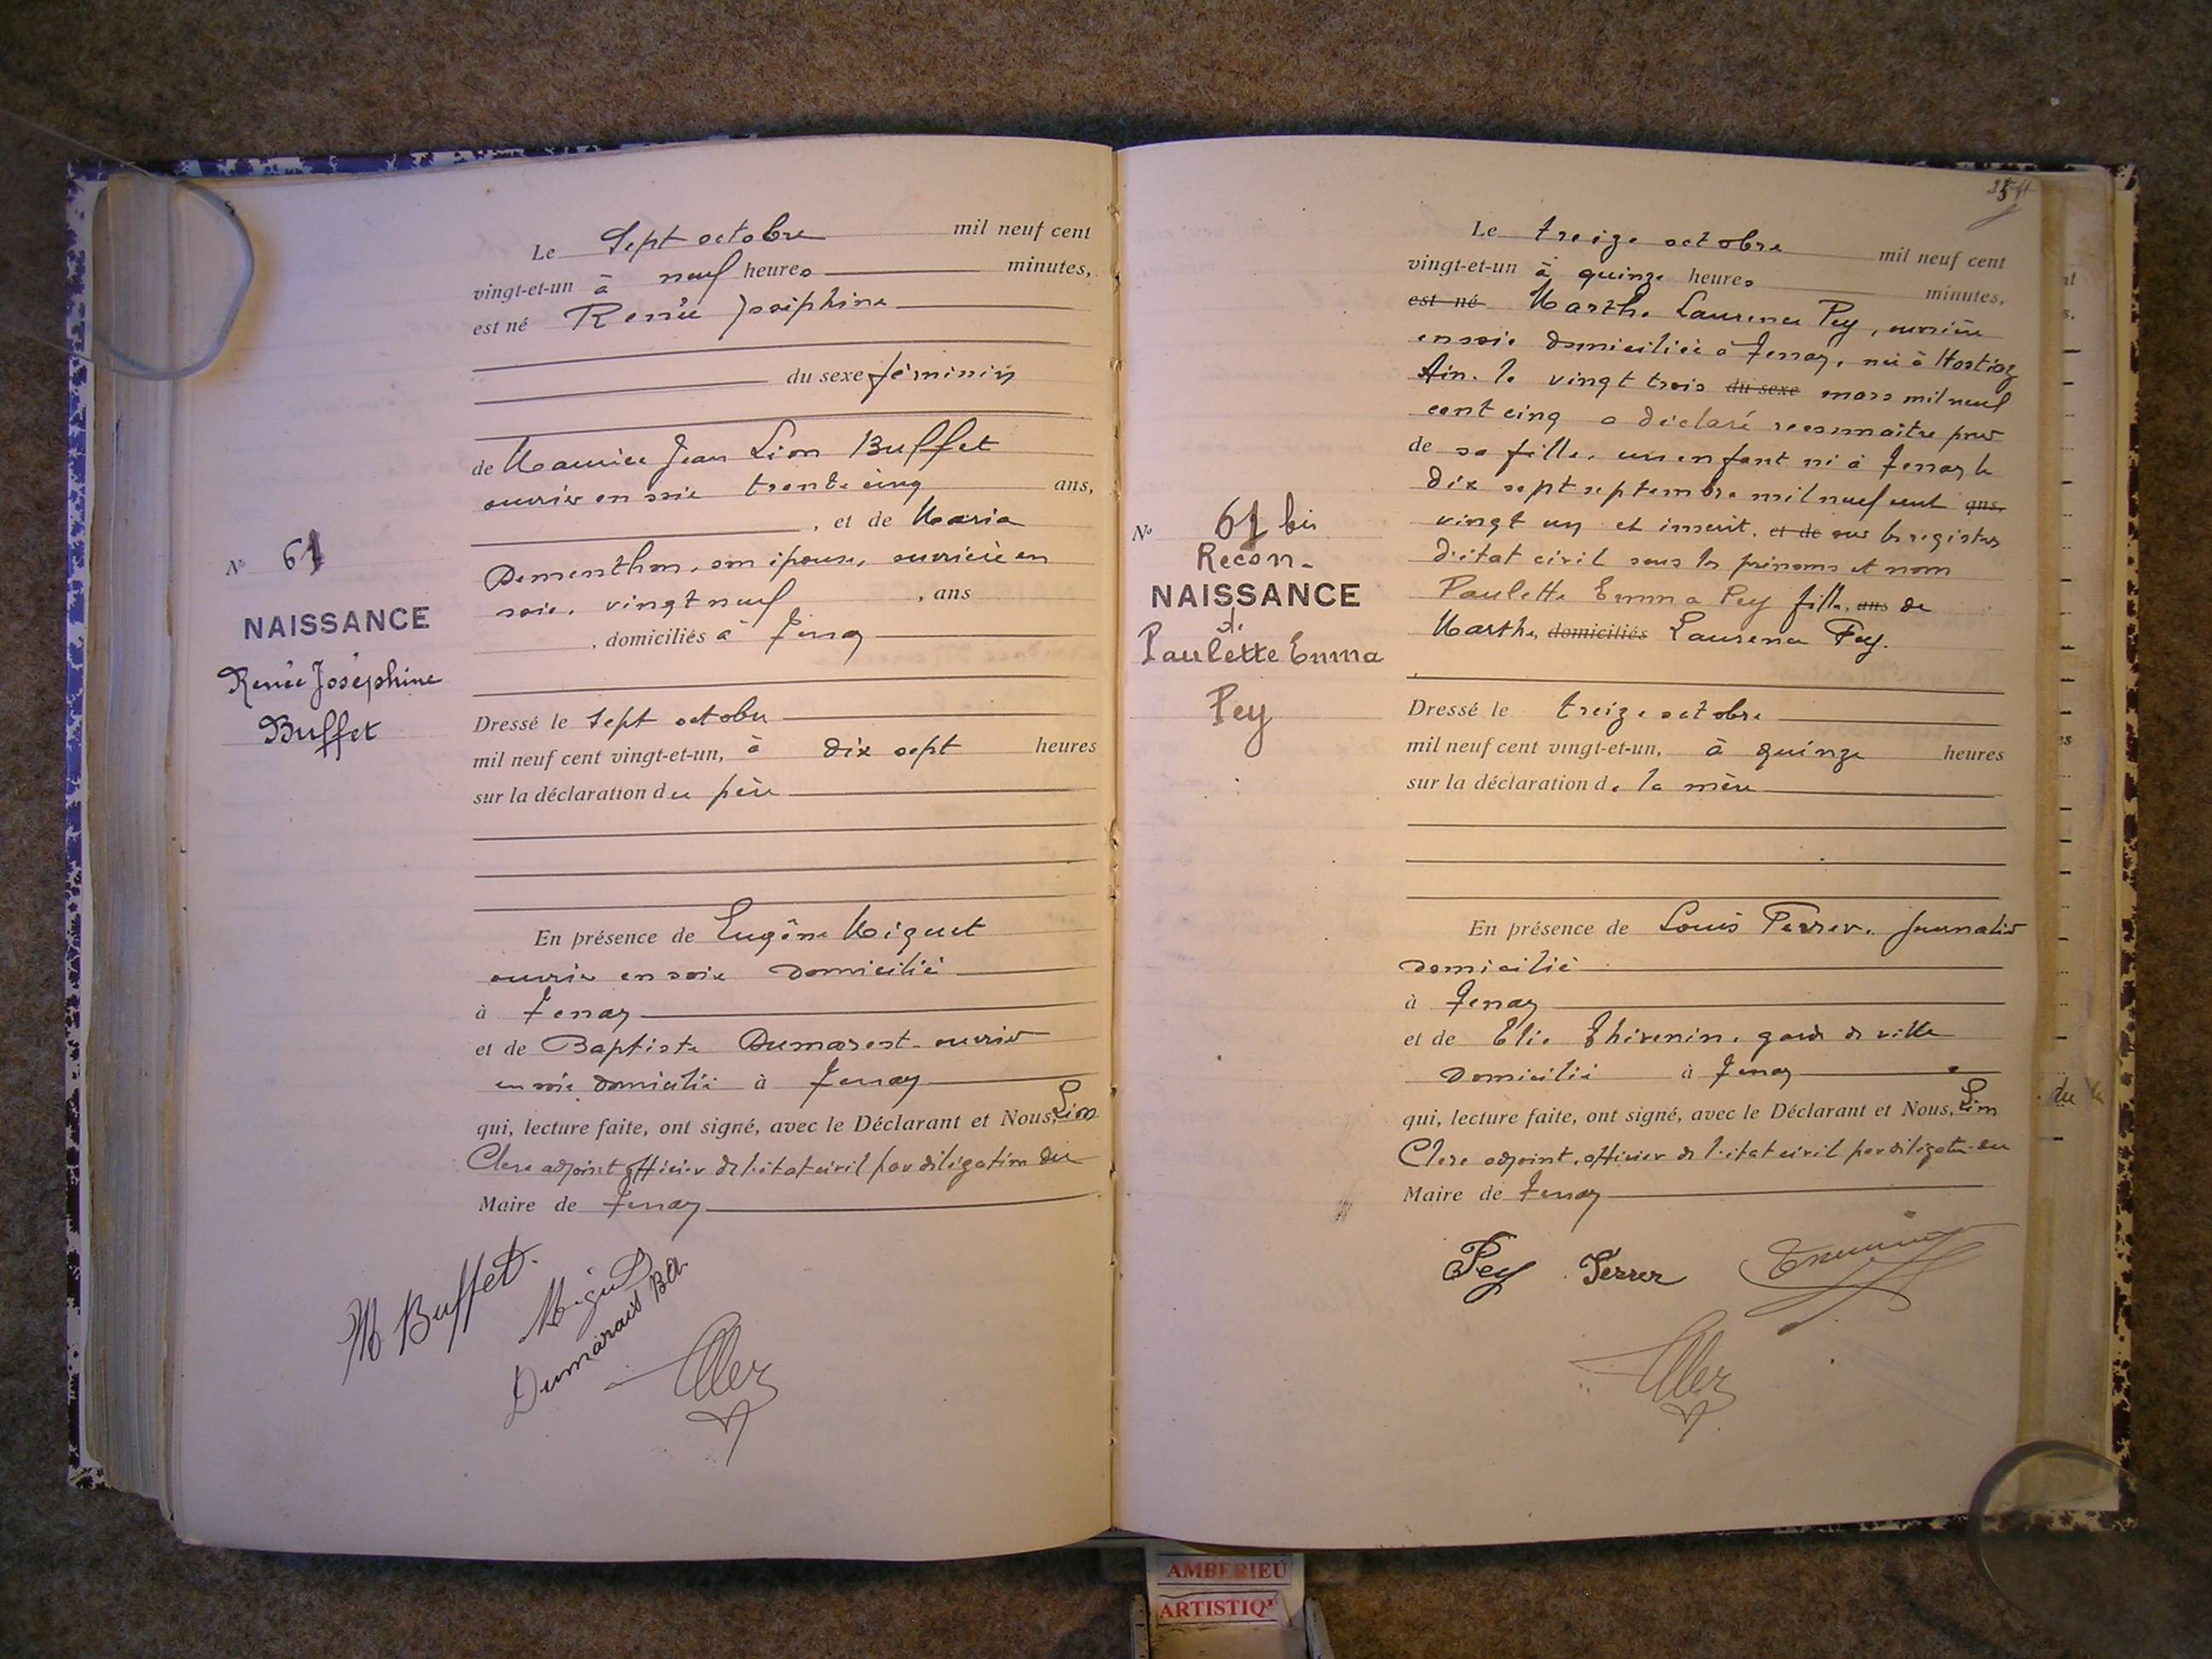 N° 61
NAISSANCE
Renée Joséphine
Buffet
Le Sept octobre mil neuf cent
vingt-et-un à neuf heures minutes,
est né Renée Joséphine
du sexe féminin
de Maurice Jean Léon Buffet
ouvrier en soie trente cinq ans,
, et de Maria
Dementhon, son épouse, ouvrière en
soie, vingt neuf , ans
, domiciliés à Tenay
Dressé le Sept octobre
mil neuf cent vingt-et-un, à dix sept heures
sur la déclaration du père
En présence de Eugène Miguet
ouvrier en soie domicilié
à Tenay
et de Baptiste Dumarest ouvrier
en soie domicilié à Tenay
qui, lecture faite, ont signé, avec le Déclarant et Nous, Léon
Clerc adjoint officier de l'état civil par délégation du
Maire de Tenay
M Buffet.
Miguet
Dumarais Ba
Clerc
N° 61 bis
Recon-
NAISSANCE
de
Paulette Emma
Pey
Le treize octobre mil neuf cent
vingt-et-un à quinze heures minutes,
est né Marthe Laurence Pey, ouvrière
en soie domiciliée à Tenay, née à Hostiaz
Ain. le vingt trois du sexe mars mil neuf
cent cinq a déclaré reconnaître pour
de sa fille, un enfant né à Tenay le
dix sept septembre mil neuf cent ans,
vingt un et inscrit, et de sur les registres
d'état civil sous les prénoms et nom
Paulette Emma Pey fille, ans de
Marthe, domiciliés Laurence Pey.
Dressé le treize octobre
mil neuf cent vingt-et-un, à quinze heures
sur la déclaration de la mère
En présence de Louis Perrer, journalier
domicilié
à Tenay
et de Elie Thévenin, garde de ville
domicilié à Tenay
qui, lecture faite, ont signé, avec le Déclarant et Nous, Léon
Clerc adjoint, officier de l'état civil par délégation du
Maire de Tenay
Pey Perrer
Clerc
AMBERIEU
ARTISTIQ